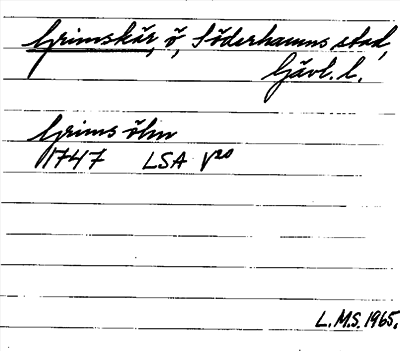 Grimskär, ö, Söderhamns stad,
Gävl. l.
Grims ölm
1747 LSA V20
L.M.S. 1965.